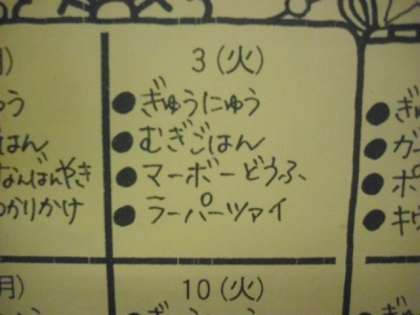 月)
3 (火)
ぎゅうにゅう
むぎごはん
マーボーどうふ
ラーパーツァイ
ゅう
はん
なんばんやき
ゆかりかけ
ぎ
カ
ポ
キウ
月)
10 (火)